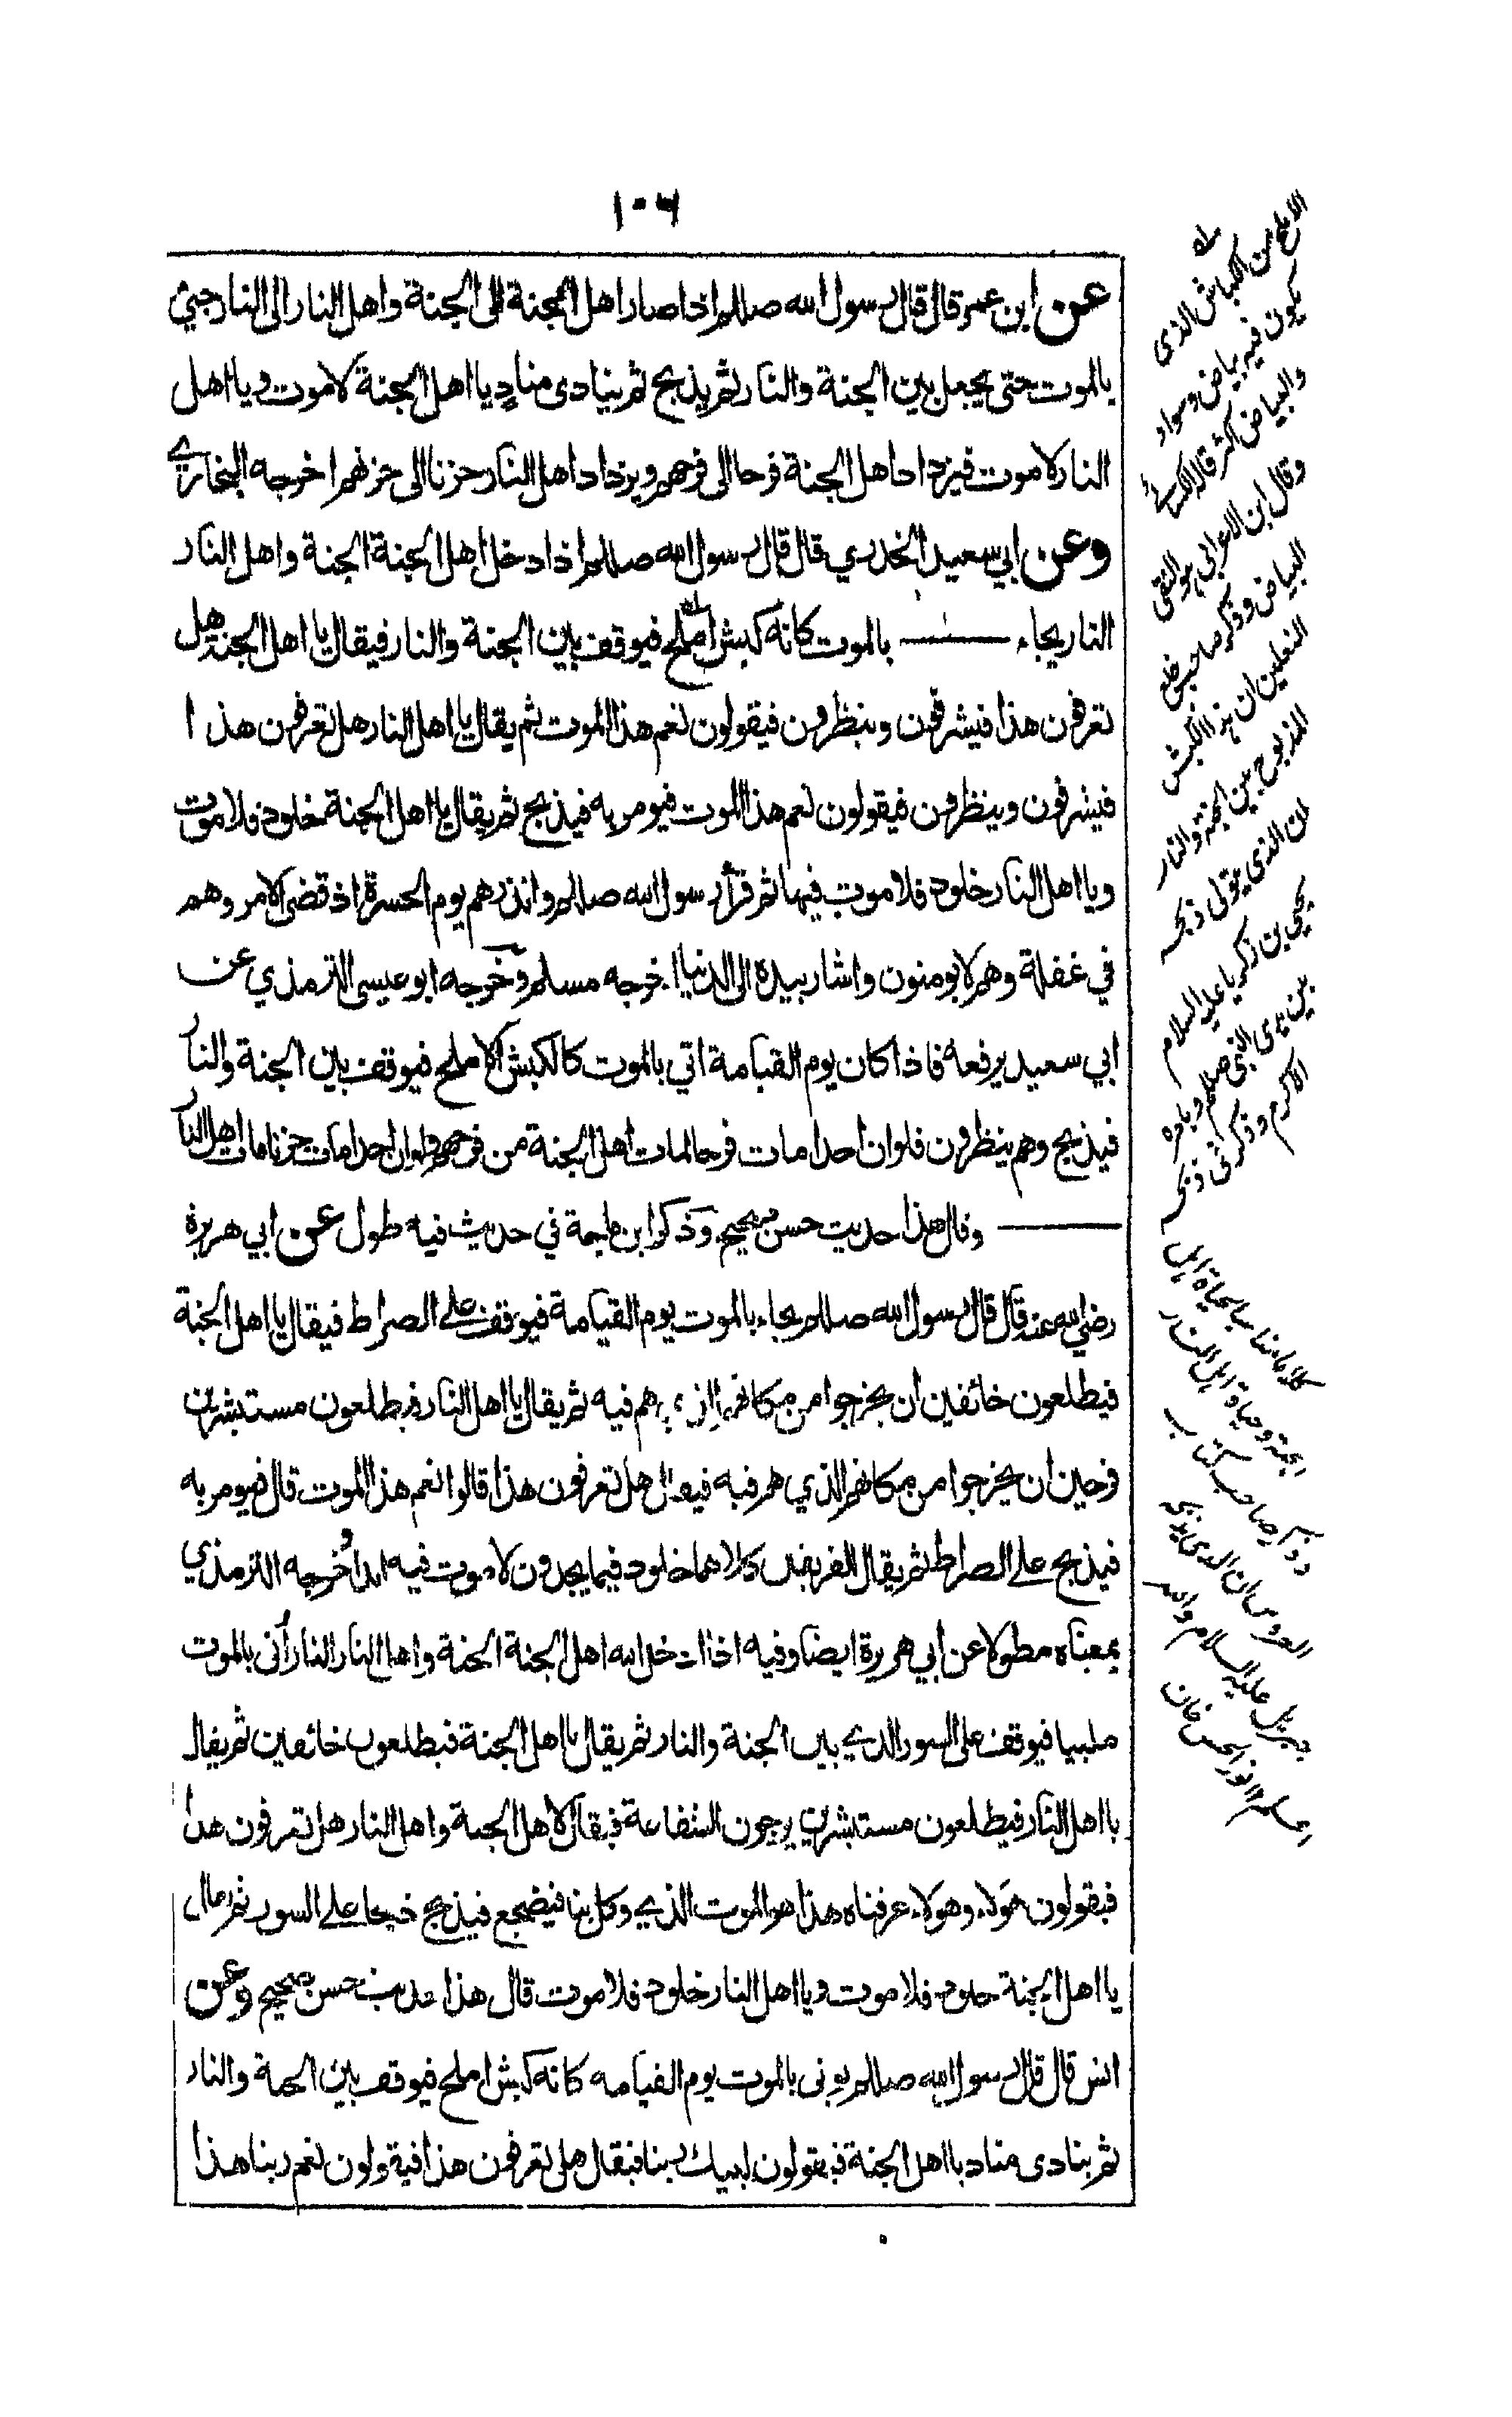 ١٠٦
عن ابن عمر قال قال رسول الله صللم اذا صار اهل الجنة الى الجنة واهل النار الى النار جيئ
بالموت حتى يجعل بين الجنة والنار ثم يذبح ثم ينادى منادٍ يا اهل الجنة لا موت ويا اهل
النار لا موت فيزداد اهل الجنة فرحا الى فرحهم ويزداد اهل النار حزنا الى حزنهم اخرجه البخاري
وعن ابي سعيد الخدري قال قال رسول الله صللم اذا دخل اهل الجنة الجنة واهل النار
النار يجاء بالموت كانه كبش املح فيوقف بين الجنة والنار فيقال يا اهل الجنة هل
تعرفون هذا فيشرفون وينظرون فيقولون نعم هذا الموت ثم يقال يا اهل النار هل تعرفون هذا
فيشرفون وينظرون فيقولون نعم هذا الموت فيومر به فيذبح ثم يقال يا اهل الجنة خلود فلا موت
ويا اهل النار خلود فلا موت فيها ثم قرأ رسول الله صللم وانذرهم يوم الحسرة اذ قضى الامر وهم
في غفلة وهم لا يومنون واشار بيده الى الدنيا اخرجه مسلم وخرجه ابو عيسى الترمذي عن
ابي سعيد يرفعه فاذا كان يوم القيامة اتي بالموت كالكبش الاملح فيوقف بين الجنة والنار
فيذبح وهم ينظرون فلو ان احدا مات فرحا لمات اهل الجنة من فرحهم ولو ان احدا مات حزنا مات اهل النار
وقال هذا حديث حسن صحيح وذكر ابن ماجة في حديث فيه طول عن ابي هريرة
رضي الله عنه قال قال رسول الله صللم يجاء بالموت يوم القيامة فيوقف على الصراط فيقال يا اهل الجنة
فيطلعون خائفين ان يخرجوا من مكانهم الذي هم فيه ثم يقال يا اهل النار فيطلعون مستبشرين
فرحين ان يخرجوا من مكانهم الذي هم فيه فيقال هل تعرفون هذا قالوا نعم هذا الموت قال فيومر به
فيذبح على الصراط ثم يقال للفريقين كلاهما خلود فيما يجدون لا موت فيه ابدا وخرجه الترمذي
بمعناه مطولا عن ابي هريرة ايضا وفيه اذا ادخل الله اهل الجنة الجنة واهل النار النار أتى بالموت
ملبيا فيوقف على السور الذي بين الجنة والنار ثم يقال يا اهل الجنة فيطلعون خائفين ثم يقال
يا اهل النار فيطلعون مستبشرين يرجون الشفاعة فيقال لاهل الجنة واهل النار هل تعرفون هذا
فيقولون هولاء وهولاء عرفناه هذا هو الموت الذي وكل بنا فيضجع فيذبح ذبحا على السور ثم يقال
يا اهل الجنة خلود فلا موت ويا اهل النار خلود فلا موت قال هذا حديث حسن صحيح وعن
انس قال قال رسول الله صللم يوتى بالموت يوم القيامه كانه كبش املح فيوقف بين الجنة والنار
ثم ينادى مناد يا اهل الجنة فيقولون لبيك ربنا فيقال هل تعرفون هذا فيقولون نعم ربنا هذا
الاملح من الكباش الذى
يكون فيه بياض وسواد
والبياض اكثر قاله الكسائى
وقال ابن الاعرابي هو النقى
البياض وذكر صاحب خلع
النعلين ان هذا الكبش
المذبوح بين الجنة والنار
ان الذى يتولى ذبحه
يحيى بن زكريا عليه السلام
بين يدى النبى صللم وبامره
الاكرم وذكر فى ذبحه
كلاما مناسبا لحياة اهل
الجنة وحياة اهل النار
وذكر صاحب كتاب
العروس ان الذى يذبحه
جبريل عليه السلام والله
اعلم ١٢ نور الحسن خان